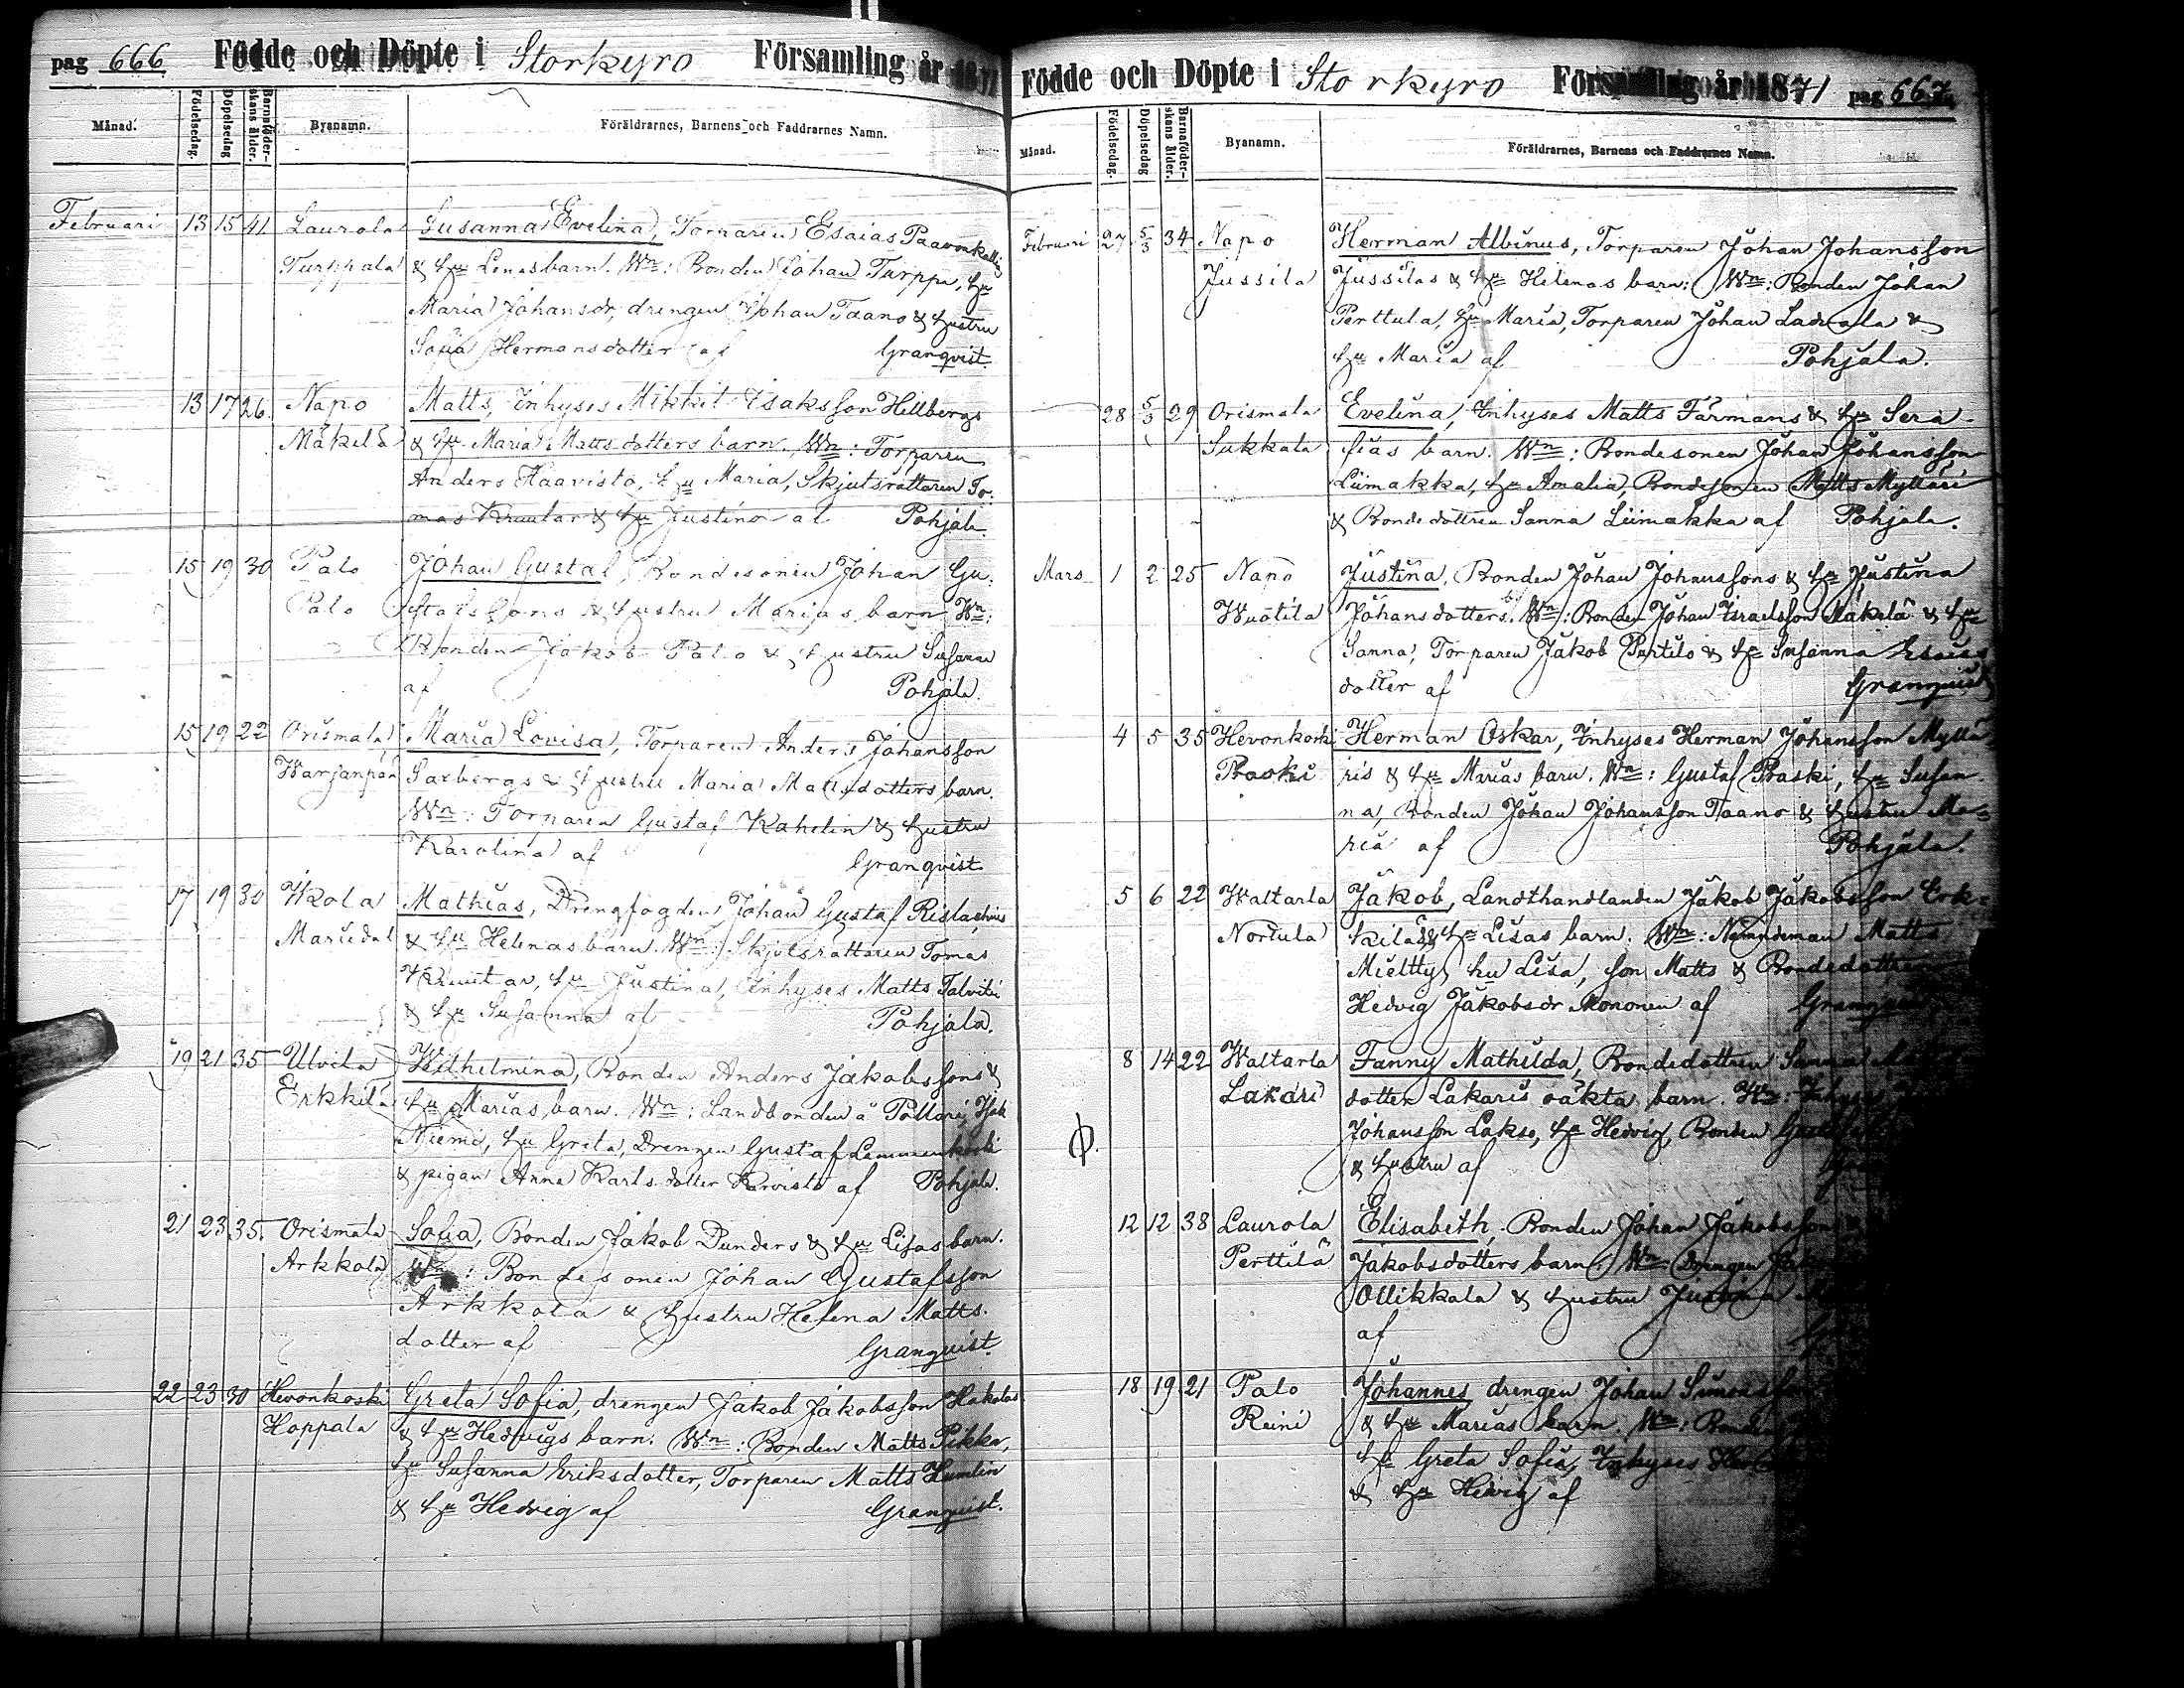 pag 666 Födde och Döpte i Storkyro Församling år 1871
Månad. Födelsedag. Döpelsedag Barnaföder-skans ålder. Byanamn. Föräldrarnes, Barnens och Faddrarnes Namn.
Februari 13 15 41 Laurola Susanna Evelina, Torparen Esaias Paavonkallio
Turppala & hu Lenas barn. Wn: Bonden Johan Turppa, hu
Maria Johansdr, drengen Johan Taano & hustru
Sofia Hermansdotter af Granqvist.
13 17 26 Napo Matts, Inhyses Mikkel Isaksson Hellbergs
Mäkelä & hu Maria Mattsdotters barn. Wn: Torparen
Anders Haavisto, hu Maria, Skjutsrättaren To-
mas & hu Justina af Pohjala.
15 19 30 Palo Johan Gustaf, Bondesonen Johan Gu-
Palo stafssons & hustru Marias barn Wn:
Bonden Jakob Palo & hustru Susanna
af Pohjala.
15 19 22 Orismala Maria Lovisa, Torparen Anders Johansson
Warjanpää Saxbergs & hustru Maria Mattsdotters barn.
Wn: Torparen Gustaf Kahelin & hustru
Karolina af Granqvist
17 19 30 Ikola Mathias, Drengfogden Johan Gustaf Rislachius
Mariedal & hu Helenas barn. Wn: Skjutsrättaren Tomas
hu Justina, Inhyses Matts Talvitie
& hu Susanna af Pohjala.
19 21 35 Ulvila Wilhelmina, Bonden Anders Jakobssons &
Erkkilä hu Marias barn. Wn: Landbonden å Pollari, Isak
Niemi, hu Greta, Drengen Gustaf Lammenkoski
& pigan Anna Karlsdotter af Pohjala.
21 23 35 Orismala Sofia, Bonden Jakob Dunders & hu Lisas barn.
Arkkola Wn: Bondesonen Johan Gustafsson
Arkkola & hustru Helena Matts-
dotter af Granqvist.
22 23 30 Hevonkoski Greta Sofia, drengen Jakob Jakobsson Hakolas
Hoppala & hu Hedvigs barn. Wn: Bonden Matts Pikka,
hu Susanna Eriksdotter, Torparen Matts Humlin
& hu Hedvig af Granqvist.
Födde och Döpte i Storkyro Församling år 1871 pag 667
Månad. Födelsedag. Döpelsedag Barnaföder-skans ålder. Byanamn. Föräldrarnes, Barnens och Faddrarnes Namn.
Februari 27 5/3 34 Napo Herman Albinus, Torparen Johan Johansson
Jussila Jussilas & hu Helenas barn: Wn: Bonden Johan
Perttula, hu Maria, Torparen Johan &
hu Maria af Pohjala.
28 5/3 29 Orismala Evelina, Inhyses Matts Färmans & hu Sera-
Sukkala fias barn. Wn: Bondesonen Johan Johansson
Liimakka, hu Amalia, Bondesonen Matts Mylläri
& Bondedottren Sanna Liimakka af Pohjala.
Mars 1 2 25 Napo Justina, Bonden Johan Johanssons & hu Justina
Wuotila Johansdotters b. Wn: Bonden Johan Israelsson Mäkelä & hu
Sanna, Torparen Jakob & hu Susanna Esaias
dotter af Granqvist
4 5 35 Hevonkoski Herman Oskar, Inhyses Herman Johansson Myllä-
Raski ris & hu Marias barn. Wn: Gustaf Raski, hu Susan
na, Bonden Johan Johansson Taano & hustru Ma-
ria af Pohjala.
5 6 22 Waltarla Jakob, Landthandlanden Jakob Jakobsson Erk-
Nortula kilas & hu Lisas barn. Wn: Nämndeman Matts
Mieltty, hu Lisa, son Matts & Bondedottr
Hedvig Jakobsdr Mononen af Granqvist
8 14 22 Waltarla Fanny Mathilda, Bondedottren Sanna
Lakari dotter Lakaris oäkta barn. Wn: Inhyses
Johansson Lakso, hu Hedvig, Bonden
& hustru af
12 12 38 Laurola Elisabeth, Bonden Johan Jakobssons
Perttilä Jakobsdotters barn. Wn: Drengen
Ollikkala & hustru Justina
af
18 19 21 Palo Johannes, drengen Johan Simonsson
Reini & hu Marias barn. Wn: Bonden
hu Greta Sofia, Inhyses
& hu Hedvig af